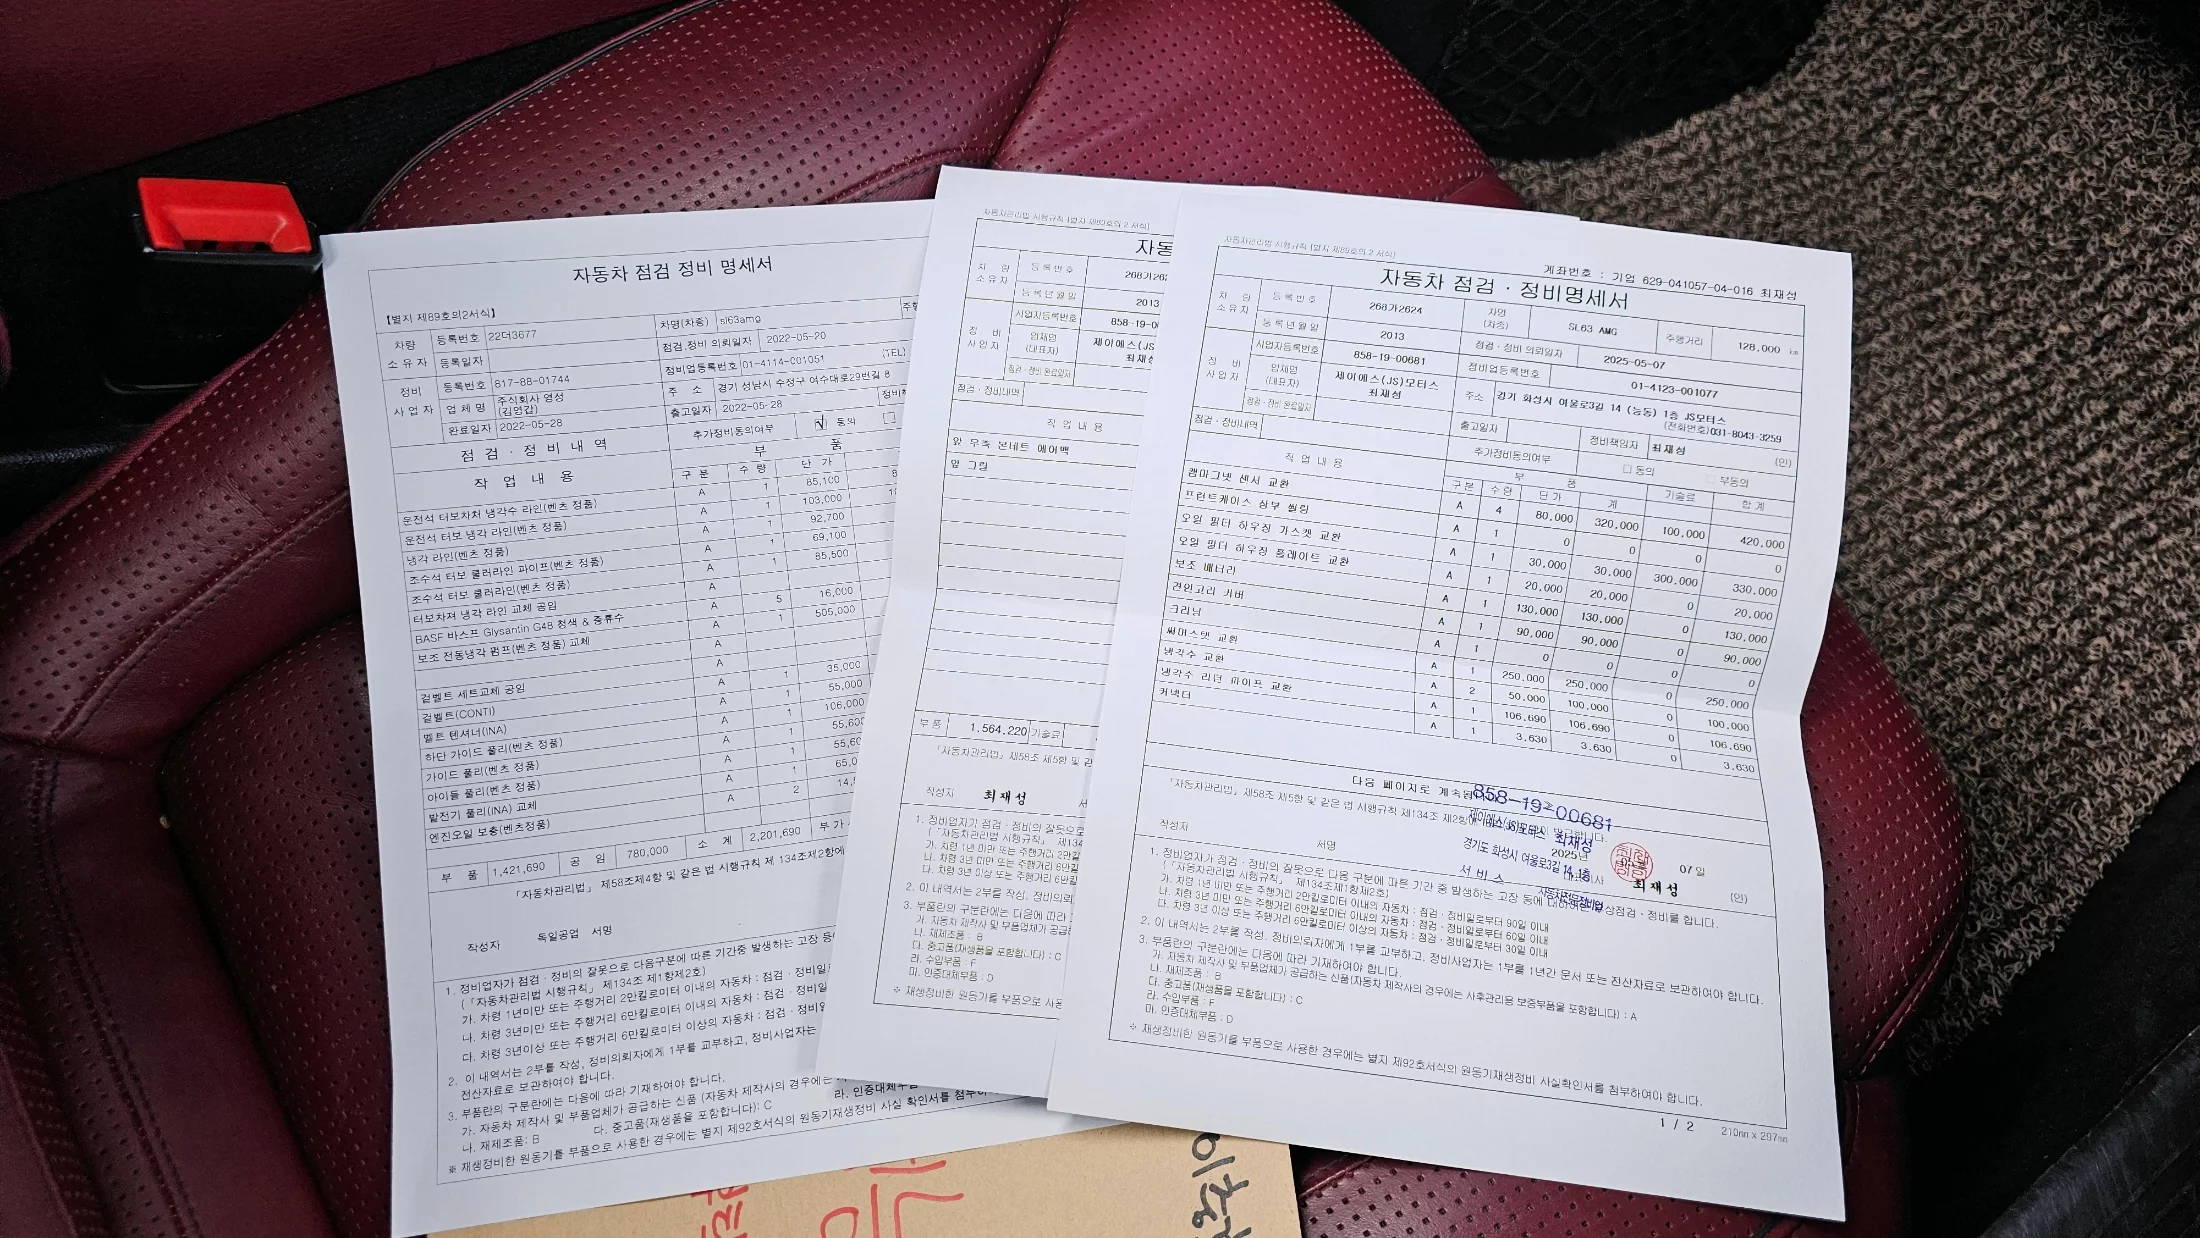 자동차 점검 정비 명세서
【별지 제89호의2서식】
차량 소유자 등록번호 22더3677 차명(차종) sl63amg
등록일자 점검.정비 의뢰일자 2022-05-20
정비 사업자 등록번호 817-88-01744 정비업등록번호 01-4114-001051 (TEL)
업체명 주식회사 영성 (김영갑) 주 소 경기 성남시 수정구 여수대로29번길 8
완료일자 2022-05-28 출고일자 2022-05-28
점검 · 정비내역 추가정비동의여부 √ 동의
작업내용 부 품
구분 수량 단가
운전석 터보차처 냉각수 라인(벤츠 정품) A 1 85,100
운전석 터보 냉각 라인(벤츠 정품) A 1 103,000
냉각 라인(벤츠 정품) A 1 92,700
조수석 터보 쿨러라인 파이프(벤츠 정품) A 1 69,100
조수석 터보 쿨러라인(벤츠 정품) A 1 85,500
터보차져 냉각 라인 교체 공임 A
BASF 바스프 Glysantin G48 청색 & 증류수 A 5 16,000
보조 전동냉각 펌프(벤츠 정품) 교체 A 1 505,000
겉벨트 세트교체 공임 A
겉벨트(CONTI) A 1 35,000
벨트 텐셔너(INA) A 1 55,000
하단 가이드 풀리(벤츠 정품) A 1 106,000
가이드 풀리(벤츠 정품) A 1
아이들 풀리(벤츠 정품) A 1
발전기 풀리(INA) 교체 A 1
엔진오일 보충(벤츠정품) A 2
부 품 1,421,690 공 임 780,000 소 계 2,201,690
「자동차관리법」 제58조제4항 및 같은 법 시행규칙 제 134조제2항에
작성자 독일공업 서명
1. 정비업자가 점검 · 정비의 잘못으로 다음구분에 따른 기간중 발생하는 고장 등에
(「자동차관리법 시행규칙」 제134조 제1항제2호)
가. 차령 1년미만 또는 주행거리 2만킬로미터 이내의 자동차 : 점검 · 정비일로
나. 차령 3년미만 또는 주행거리 6만킬로미터 이내의 자동차 : 점검 · 정비일
다. 차령 3년이상 또는 주행거리 6만킬로미터 이상의 자동차 : 점검 · 정비일
2. 이 내역서는 2부를 작성, 정비의뢰자에게 1부를 교부하고, 정비사업자는
전산자료로 보관하여야 합니다.
3. 부품란의 구분란에는 다음에 따라 기재하여야 합니다.
가. 자동차 제작사 및 부품업체가 공급하는 신품 (자동차 제작사의 경우에는
나. 재제조품: B 다. 중고품(재생품을 포함합니다): C 라. 인증대체부품
※ 재생정비한 원동기를 부품으로 사용한 경우에는 별지 제92호서식의 원동기재생정비 사실 확인서를 첨부하
자동차관리법 시행규칙 [별지 제89호의 2 서식]
자동
차 량 소유자 등록번호 268가262
등록년월일 2013
정 비 사업자 사업자등록번호 858-19-0
업체명 (대표자) 제이에스(JS) 최재성
점검·정비 완료일자
점검·정비내역
작업내용
앞 우측 본네트 에어백
앞 그릴
부품 1,564,220 기술료
「자동차관리법」 제58조 제5항 및 같
작성자 최재성
1. 정비업자가 점검·정비의 잘못으로
(「자동차관리법 시행규칙」 제134
가. 차령 1년 미만 또는 주행거리 2만킬
나. 차령 3년 미만 또는 주행거리 6만킬
다. 차령 3년 이상 또는 주행거리 6만킬
2. 이 내역서는 2부를 작성, 정비의뢰
3. 부품란의 구분란에는 다음에 따라
가. 자동차 제작사 및 부품업체가 공급하
나. 재제조품 : B
다. 중고품(재생품을 포함합니다) : C
라. 수입부품 : F
마. 인증대체부품 : D
※ 재생정비한 원동기를 부품으로 사용
자동차관리법 시행규칙 [별지 제89호의 2 서식]
계좌번호 : 기업 629-041057-04-016 최재성
자동차 점검 · 정비명세서
차 량 소유자 등록번호 268가2624 차명 (차종) SL63 AMG 주행거리 128,000 km
등록년월일 2013 점검·정비 의뢰일자 2025-05-07
정 비 사업자 사업자등록번호 858-19-00681 정비업등록번호 01-4123-001077
업체명 (대표자) 제이에스(JS)모터스 최재성 주소 경기 화성시 여울로3길 14 (능동) 1층 JS모터스
(전화번호)031-8043-3259
점검·정비 완료일자 출고일자 정비책임자 최재성 (인)
점검·정비내역 추가정비동의여부 □ 동의 □ 부동의
작업내용 부 품 기술료 합계
구분 수량 단가 계
캠마그넷 센서 교환 A 4 80,000 320,000 100,000 420,000
프런트케이스 상부 씰링 A 1 0 0 0 0
오일 필터 하우징 가스켓 교환 A 1 30,000 30,000 300,000 330,000
오일 필터 하우징 플레이트 교환 A 1 20,000 20,000 0 20,000
보조 배터리 A 1 130,000 130,000 0 130,000
견인고리 커버 A 1 90,000 90,000 0 90,000
크리닝 A 1 0 0 0 0
써머스탯 교환 A 1 250,000 250,000 0 250,000
냉각수 교환 A 2 50,000 100,000 0 100,000
냉각수 리턴 파이프 교환 A 1 106,690 106,690 0 106,690
커넥터 A 1 3,630 3,630 0 3,630
다음 페이지로 계속됨
「자동차관리법」 제58조 제5항 및 같은 법 시행규칙 제134조 제2항에
858-19-00681
제이에스(JS)모터스 최재성
경기도 화성시 여울로3길 14, 1층
서비스 자동차전문정비업
2025년 07 일
작성자 서명 최재성 (인)
1. 정비업자가 점검·정비의 잘못으로 다음 구분에 따른 기간 중 발생하는 고장 등에 대하여는 무상점검·정비를 합니다.
(「자동차관리법 시행규칙」 제134조제1항제2호)
가. 차령 1년 미만 또는 주행거리 2만킬로미터 이내의 자동차 : 점검·정비일로부터 90일 이내
나. 차령 3년 미만 또는 주행거리 6만킬로미터 이내의 자동차 : 점검·정비일로부터 60일 이내
다. 차령 3년 이상 또는 주행거리 6만킬로미터 이상의 자동차 : 점검·정비일로부터 30일 이내
2. 이 내역서는 2부를 작성, 정비의뢰자에게 1부를 교부하고, 정비사업자는 1부를 1년간 문서 또는 전산자료로 보관하여야 합니다.
3. 부품란의 구분란에는 다음에 따라 기재하여야 합니다.
가. 자동차 제작사 및 부품업체가 공급하는 신품(자동차 제작사의 경우에는 사후관리용 보증부품을 포함합니다) : A
나. 재제조품 : B
다. 중고품(재생품을 포함합니다) : C
라. 수입부품 : F
마. 인증대체부품 : D
※ 재생정비한 원동기를 부품으로 사용한 경우에는 별지 제92호서식의 원동기재생정비 사실확인서를 첨부하여야 합니다.
1 / 2
210mm x 297mm